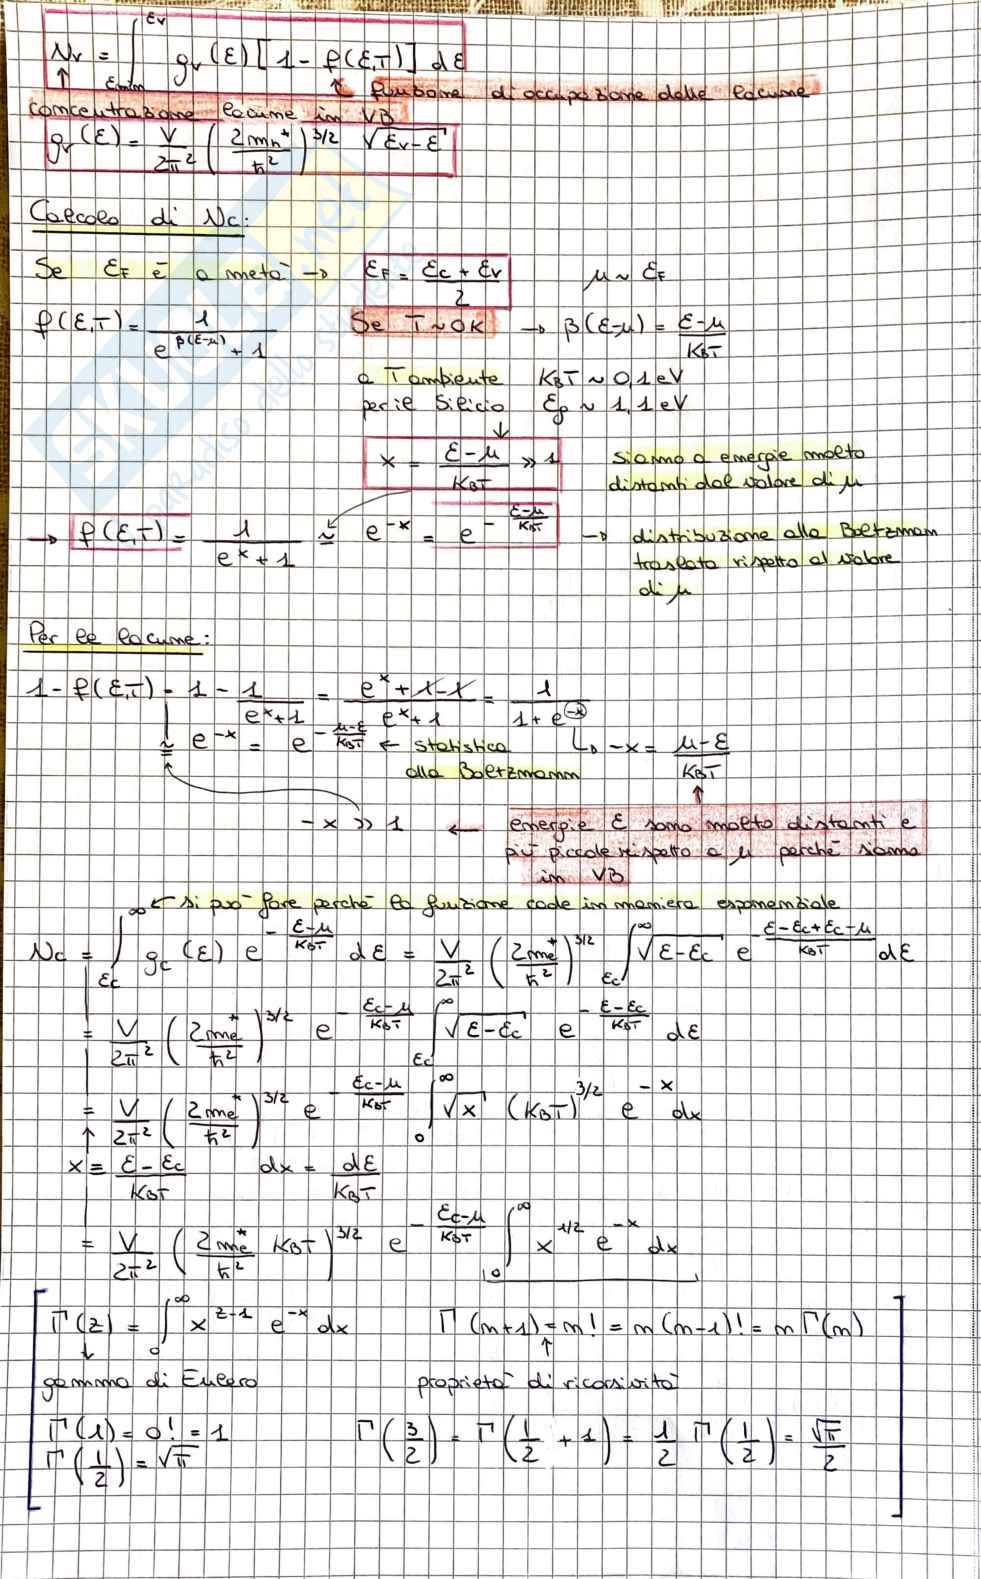 Nv = ∫_{εmin}^{εv} gv(ε) [1 - f(ε,T)] dε
↑ ↑ funzione di occupazione delle lacune
concentrazione lacune in VB
gv(ε) = V/2π² (2mh*/ħ²)^{3/2} √(εv-ε)
Calcolo di Nc:
Se εF è a metà → εF = (εc + εv)/2 μ ~ εF
f(ε,T) = 1/(e^{β(ε-μ)} + 1) Se T~0K → β(ε-μ) = (ε-μ)/KBT
a Tambiente KBT ~ 0,1 eV
per il Silicio εg ~ 1,1 eV
↓
x = (ε-μ)/KBT >> 1 siamo a energie molto
distanti dal valore di μ
→ f(ε,T) = 1/(e^x + 1) ≅ e^{-x} = e^{-(ε-μ)/KBT} → distribuzione alla Boltzmann
traslata rispetto al valore
di μ
Per le lacune:
1 - f(ε,T) = 1 - 1/(e^x+1) = (e^x + 1 - 1)/(e^x + 1) = 1/(1 + e^{-x})
≅ e^{-x} = e^{-(μ-ε)/KBT} ← statistica ↳ -x = (μ-ε)/KBT
alla Boltzmann ↑
-x >> 1 ← energie ε sono molto distanti e
più piccole rispetto a μ perché siamo
in VB
← si può fare perché la funzione cade in maniera esponenziale
Nc = ∫_{εc}^{∞} gc(ε) e^{-(ε-μ)/KBT} dε = V/2π² (2me*/ħ²)^{3/2} ∫_{εc}^{∞} √(ε-εc) e^{-(ε-εc+εc-μ)/KBT} dε
= V/2π² (2me*/ħ²)^{3/2} e^{-(εc-μ)/KBT} ∫_{εc}^{∞} √(ε-εc) e^{-(ε-εc)/KBT} dε
= V/2π² (2me*/ħ²)^{3/2} e^{-(εc-μ)/KBT} ∫_{0}^{∞} √x (KBT)^{3/2} e^{-x} dx
↑
x = (ε-εc)/KBT dx = dε/KBT
= V/2π² (2me*/ħ² KBT)^{3/2} e^{-(εc-μ)/KBT} ∫_{0}^{∞} x^{1/2} e^{-x} dx
Γ(z) = ∫_{0}^{∞} x^{z-1} e^{-x} dx Γ(n+1) = n! = n(n-1)! = nΓ(n)
↓ ↑
gamma di Eulero proprietà di ricorsività
Γ(1) = 0! = 1 Γ(3/2) = Γ(1/2 + 1) = 1/2 Γ(1/2) = √π/2
Γ(1/2) = √π
SKUOLA.net
paradiso dello studente